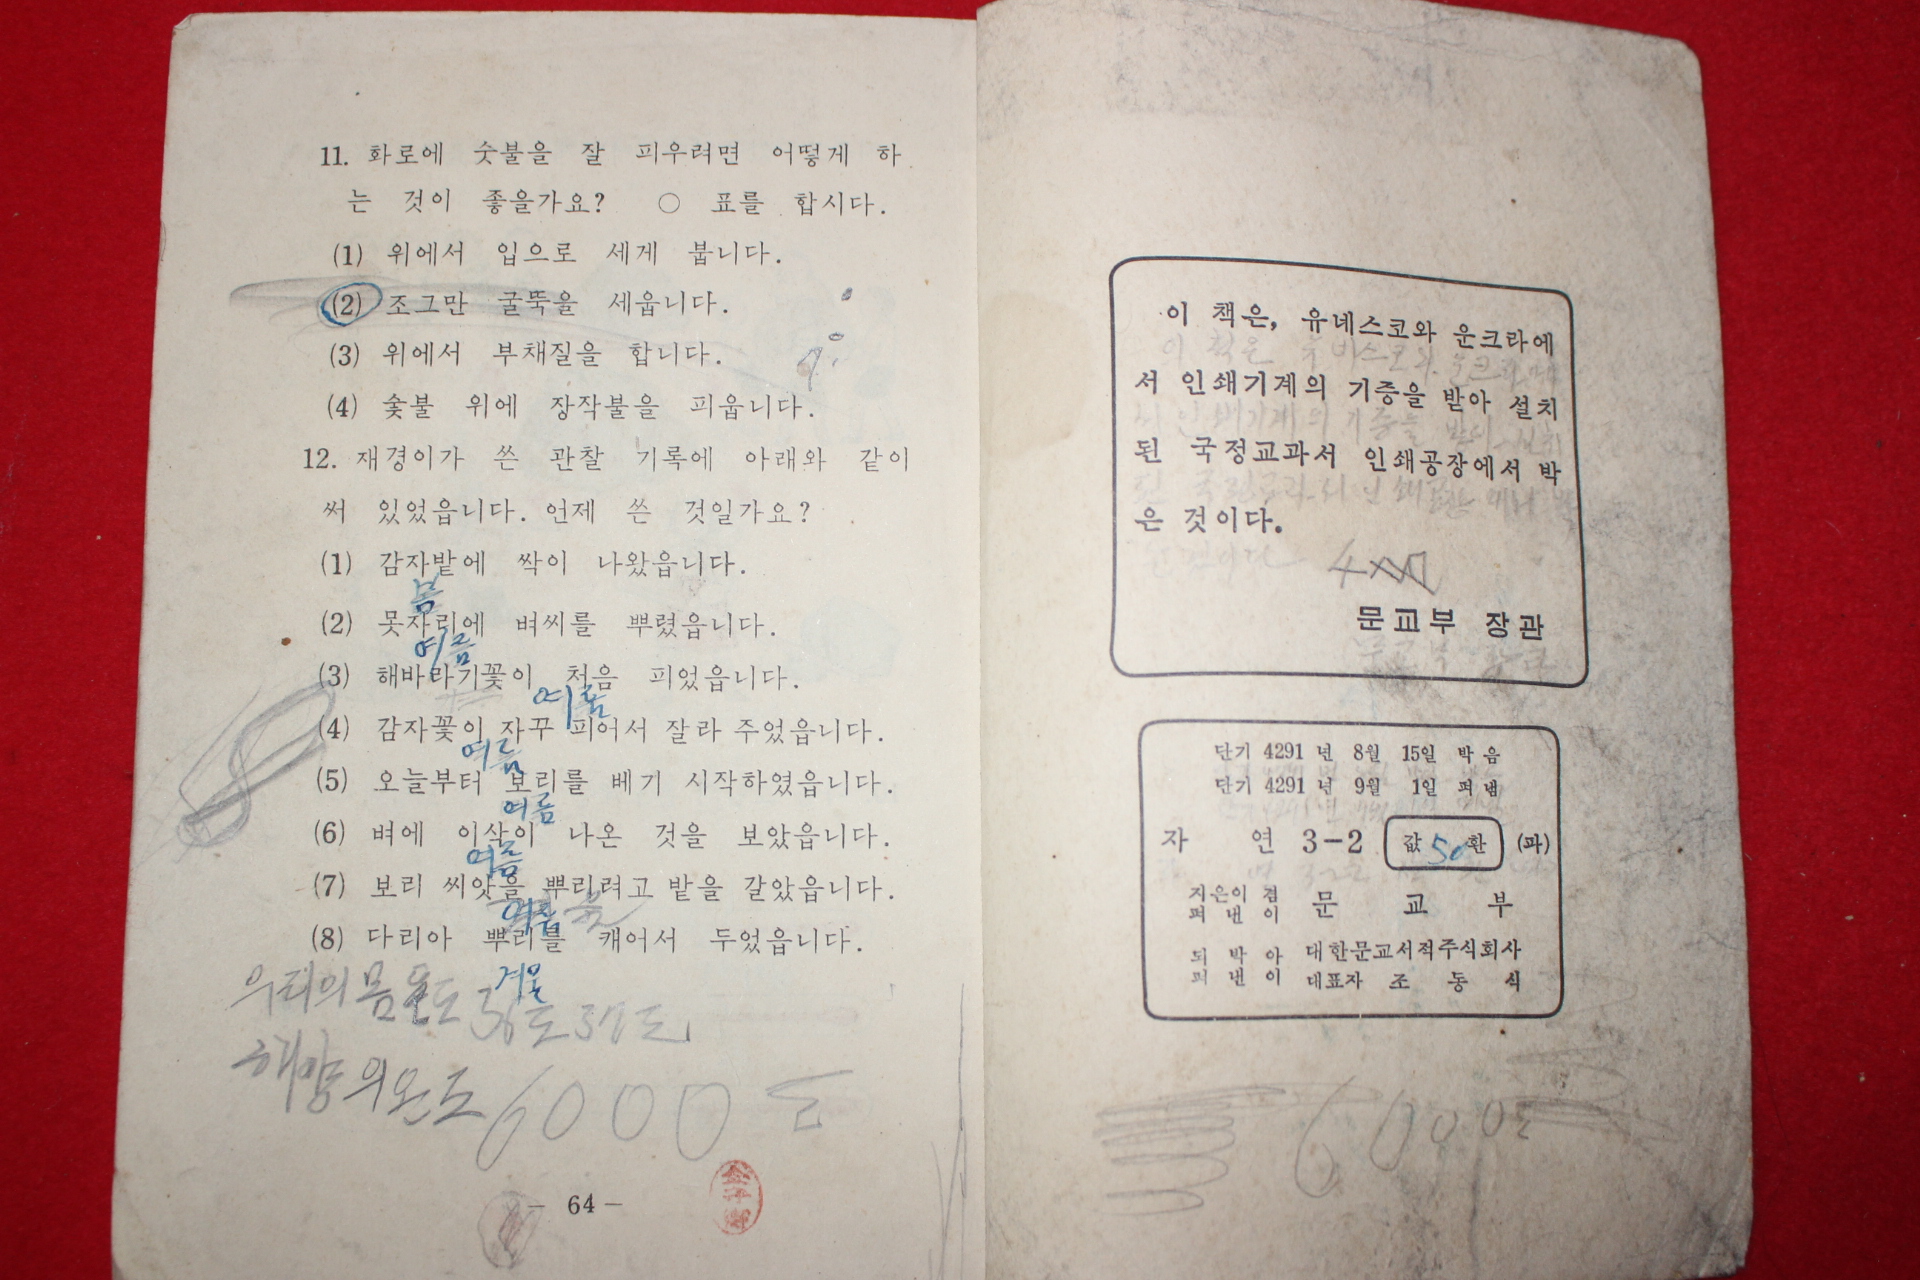 11. 화로에 숫불을 잘 피우려면 어떻게 하
는 것이 좋을가요? ○ 표를 합시다.
(1) 위에서 입으로 세게 붑니다.
(2) 조그만 굴뚝을 세웁니다.
(3) 위에서 부채질을 합니다.
(4) 숯불 위에 장작불을 피웁니다.
12. 재경이가 쓴 관찰 기록에 아래와 같이
써 있었읍니다. 언제 쓴 것일가요?
(1) 감자밭에 싹이 나왔읍니다.
봄
(2) 못자리에 벼씨를 뿌렸읍니다.
여름
(3) 해바라기꽃이 처음 피었읍니다.
여름
(4) 감자꽃이 자꾸 피어서 잘라 주었읍니다.
여름
(5) 오늘부터 보리를 베기 시작하였읍니다.
여름
(6) 벼에 이삭이 나온 것을 보았읍니다.
여름
(7) 보리 씨앗을 뿌리려고 밭을 갈았읍니다.
(8) 다리아 뿌리를 캐어서 두었읍니다.
겨울
우리의 몸 온도 36도 37도
해양의 온도 6000도
- 64 -
이 책은, 유네스코와 운크라에
서 인쇄기계의 기증을 받아 설치
된 국정교과서 인쇄공장에서 박
은 것이다.
문교부 장관
단기 4291 년 8월 15일 박음
단기 4291 년 9월 1일 펴냄
자 연 3-2 값 50 환 (파)
지은이 겸
펴 낸 이 문 교 부
되 박 아
펴 낸 이 대한문교서적주식회사
대표자 조 동 식
6000도